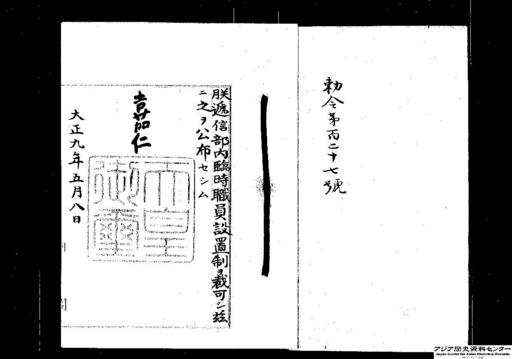 勅令第百二十七號
朕遞信部内臨時職員設置制ヲ裁可シ茲
ニ之ヲ公布セシム
嘉仁
天皇御璽
大正九年五月八日
アジア歴史資料センター
Japan Center for Asian Historical Records